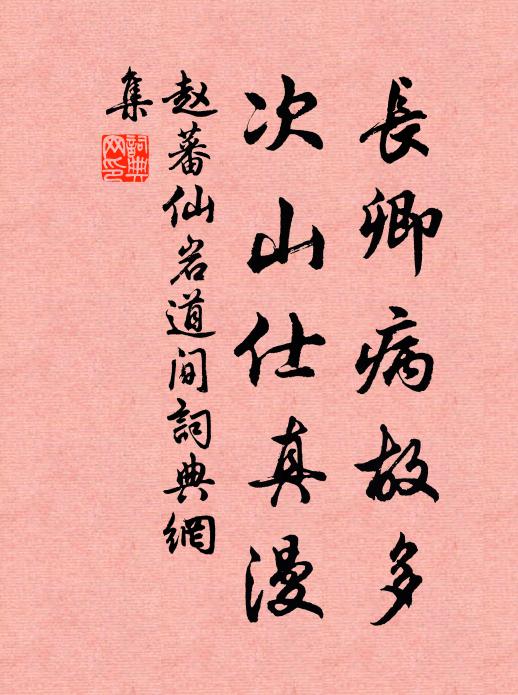 長卿病故多
次山仕真漫
赵蕃仙岩道间詞典網
集
詞典
网印